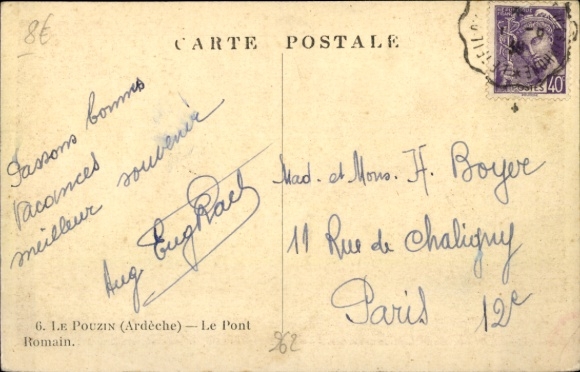 8€
CARTE POSTALE
POSTES 40c
Passons bonnes
vacances
meilleur souvenir
Aug
Mad. et Mons. H. Boyer
11 Rue de Chaligny
Paris 12e
6. LE POUZIN (Ardèche) — Le Pont
Romain.
262